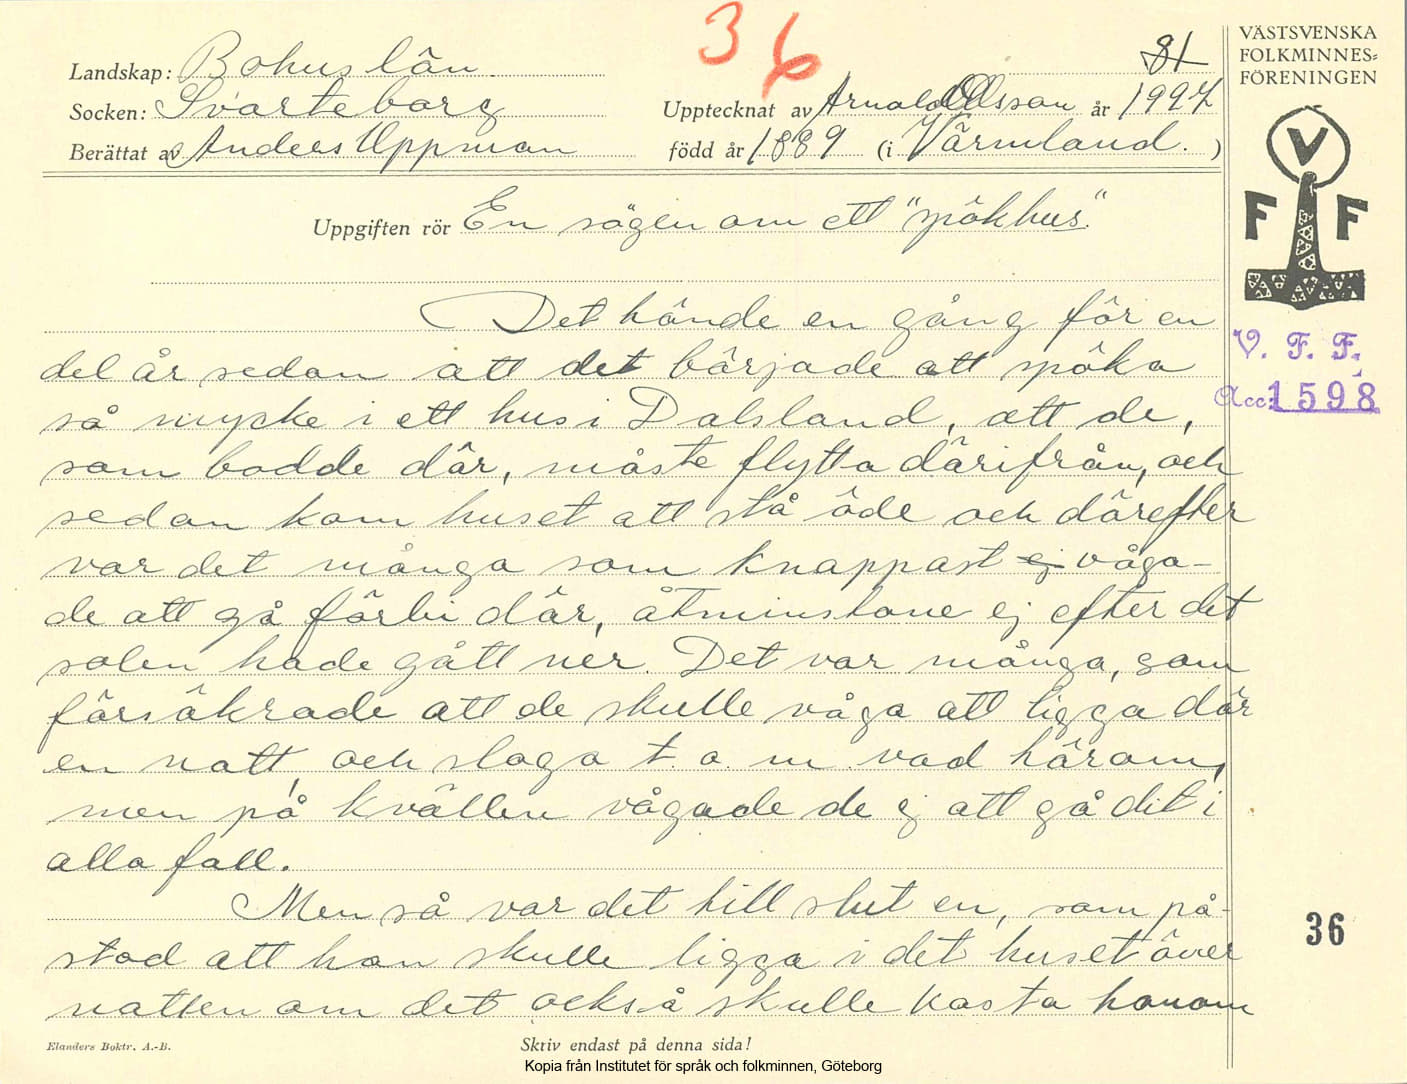 36
81
VÄSTSVENSKA
FOLKMINNES=
FÖRENINGEN
Landskap: Bohuslän
Socken: Svarteborg
Upptecknat av Arnold Olsson år 1927
Berättat av Anders Uppman
född år 1889 (i Värmland.)
V
F F
Uppgiften rör En sägen om ett "spökhus."
Det hände en gång för en
del år sedan att det började att spöka
så mycke i ett hus i Dalsland, att de,
som bodde där, måste flytta därifrån, och
sedan kom huset att stå öde och därefter
var det många som knappast ej våga-
de att gå förbi där, åtminstone ej efter det
solen hade gått ner. Det var många, som
försäkrade att de skulle våga att ligga där
en natt, och sloga t. o. m. vad härom,
men på kvällen vågade de ej att gå dit i
alla fall.
Men så var det till slut en, som på-
stod att han skulle ligga i det huset över
natten om det också skulle kosta honom
V. F. F.
Acc: 1598
36
Elanders Boktr. A.-B.
Skriv endast på denna sida!
Kopia från Institutet för språk och folkminnen, Göteborg